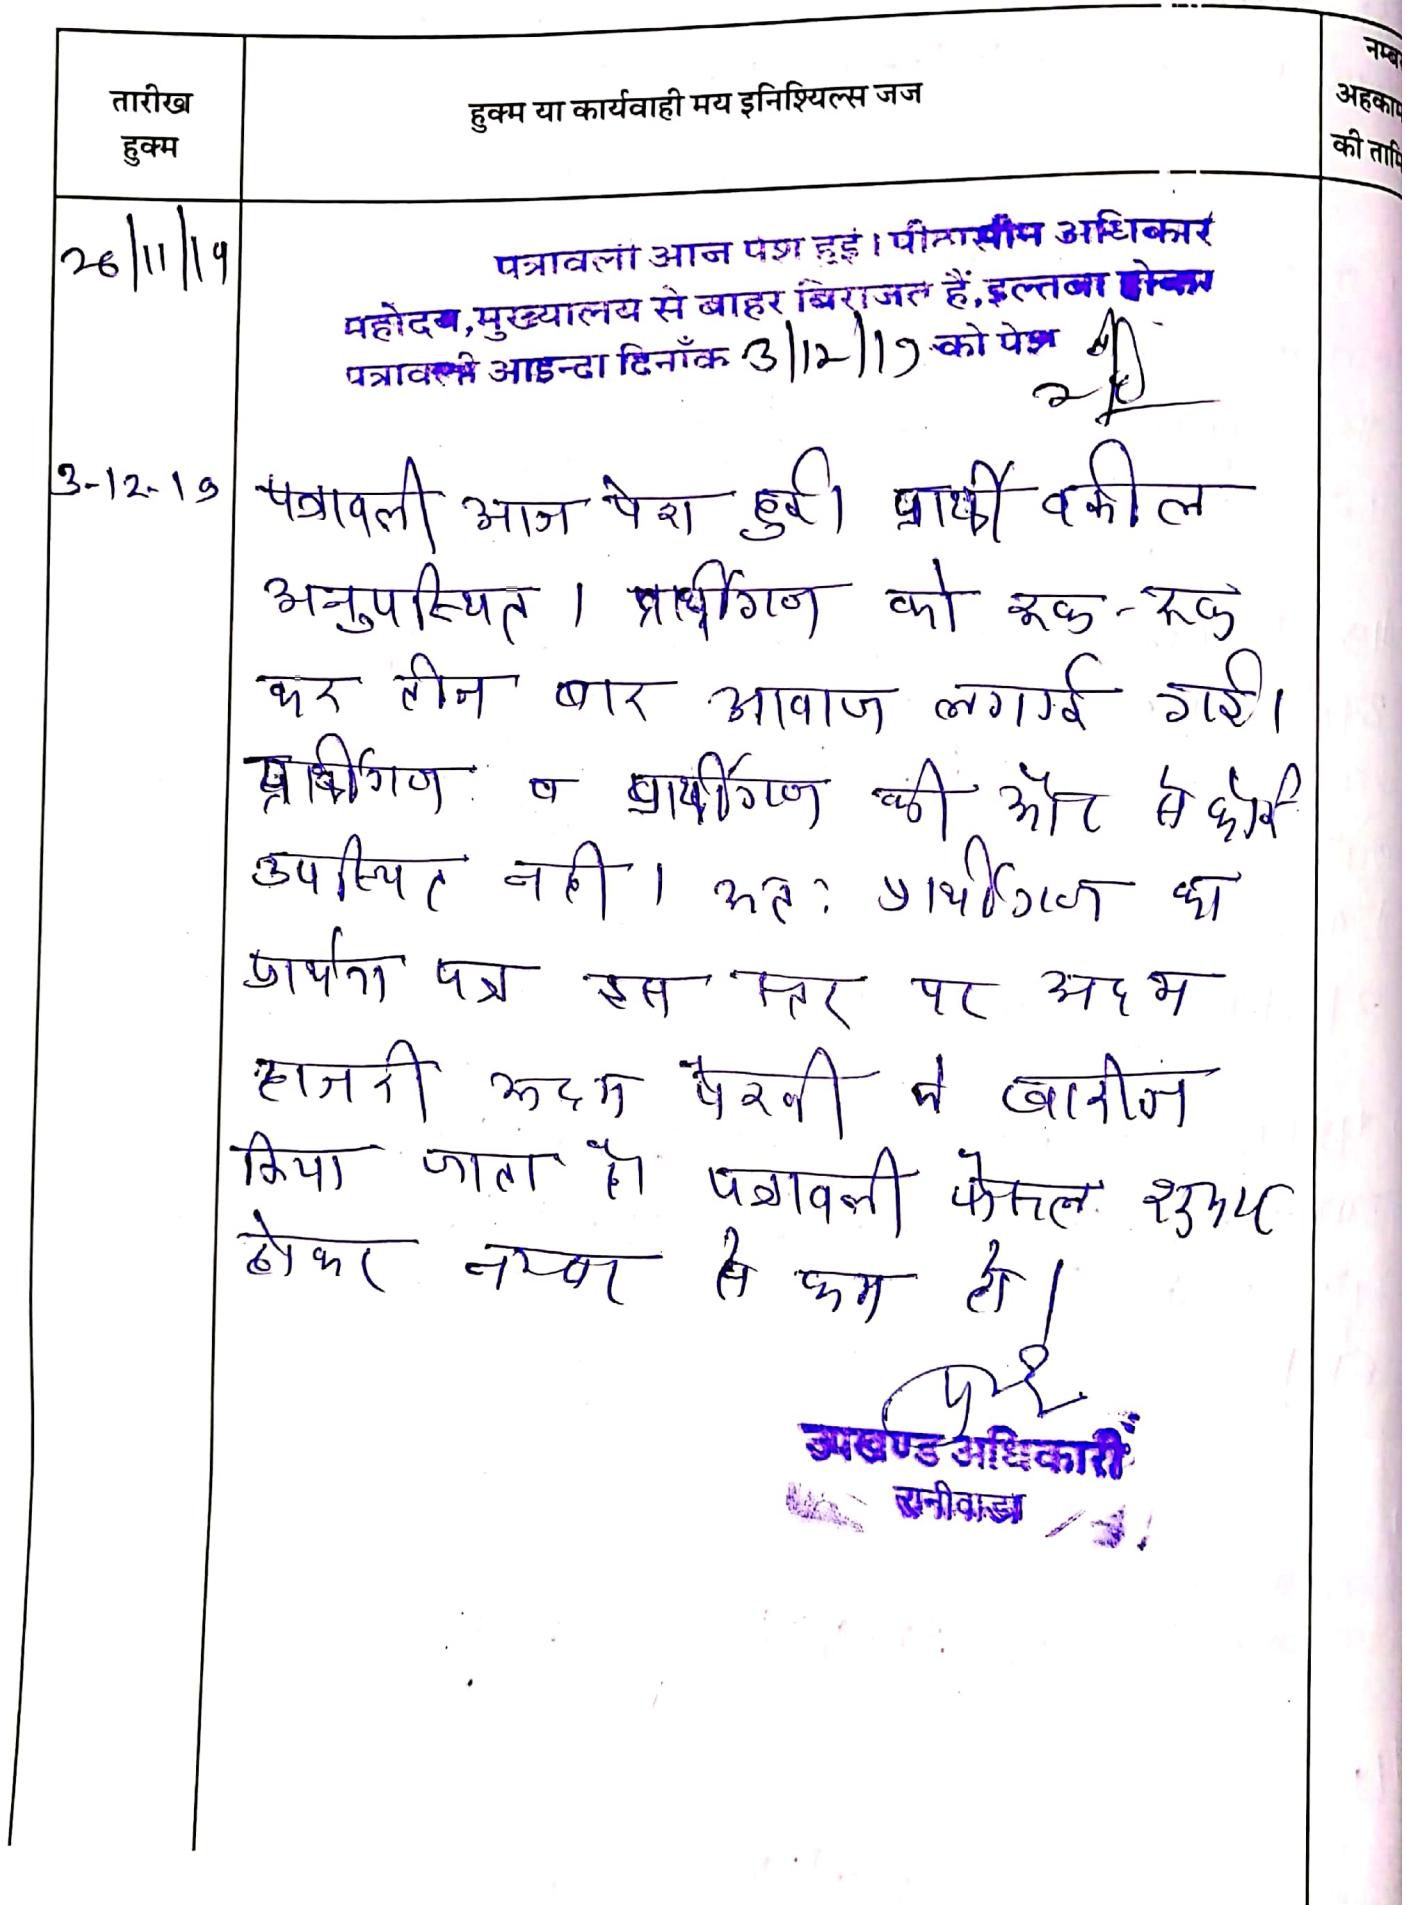 तारीख
हुक्म
हुक्म या कार्यवाही मय इनिश्यिल्स जज
नम्ब
अहकाम
की तामि
26/11/19
पत्रावली आज पेश हुई। पीठासीन अधिकारी
महोदय, मुख्यालय से बाहर बिराजते हैं, इल्तवा होकर
पत्रावली आइन्दा दिनाँक 3/12/19 को पेश
3-12-19
पत्रावली आज पेश हुई। प्रार्थी वकील
अनुपस्थित। प्रार्थीगण को रूक-रूक
कर तीन बार आवाज लगाई गई।
प्रार्थीगण व प्रार्थीगण की और से कोई
उपस्थित नही। अतः प्रार्थीगण का
प्रार्थना पत्र इस स्तर पर अदम
हाजरी अदम पैरवी मे खारीज
किया जाता है। पत्रावली फेसल शुमार
होकर नम्बर से कम हो।
उपखण्ड अधिकारी
रानीवाडा